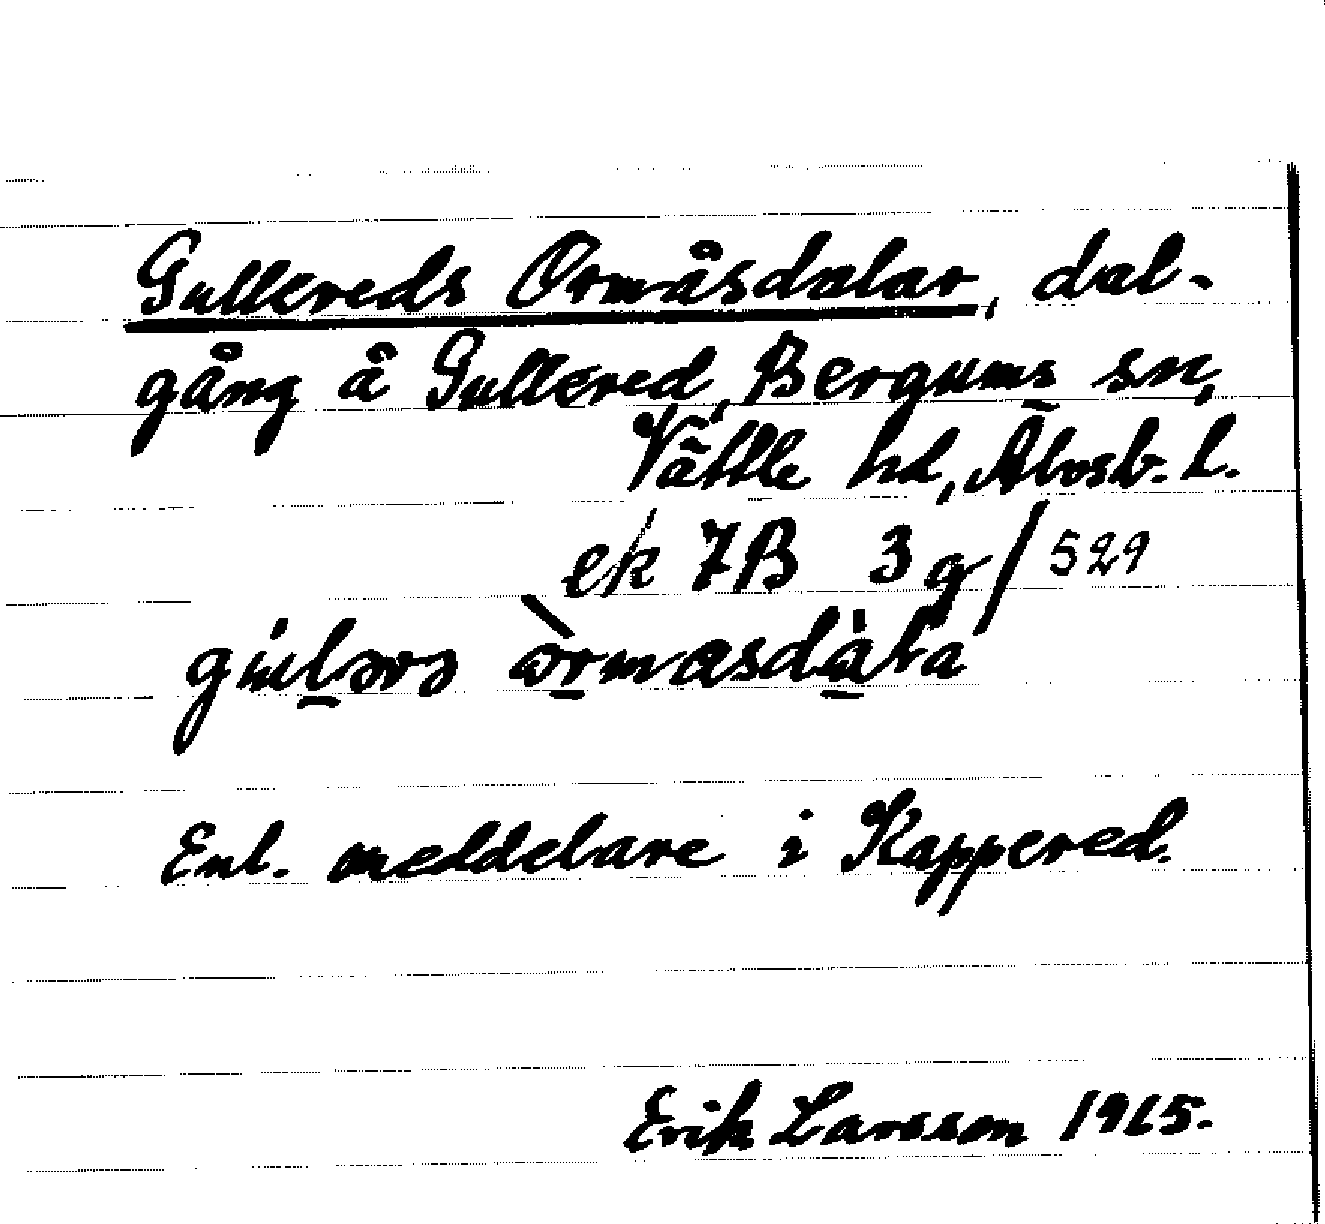 Gullereds Ormåsdalar, dal-
gång å Gullered, Bergums sn,
Vättle hd, Älvsb. l.
ek 7B 3g/529
Enl. meddelare i Kappered.
Erik Larsson 1965.